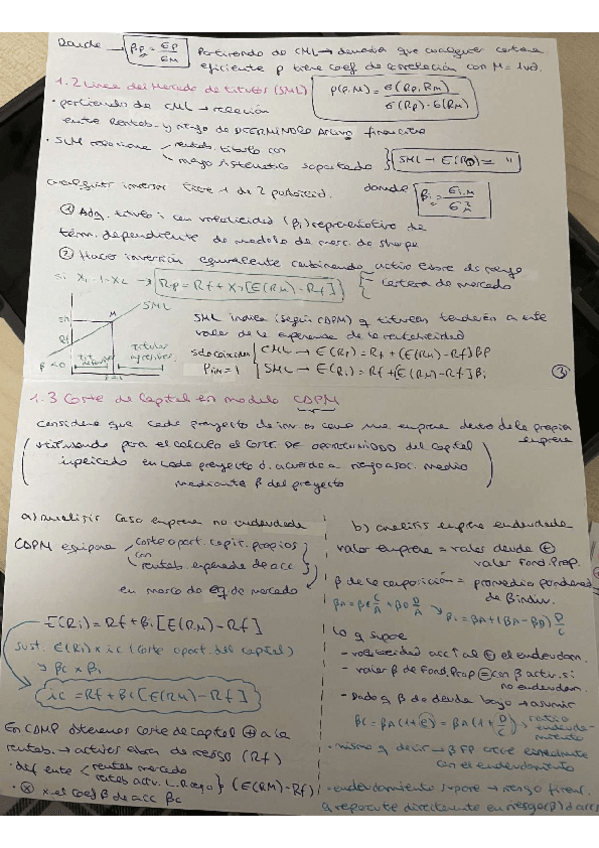 Donde → βp = σp / σM Partiendo de CML → demasia que cualquier cartera
eficiente p tiene coef de correlación con M = 1
1.2 Linea del Mercado de titulos (SML) ρ(p,M) = σ(Rp,Rm) / σ(Rp)·σ(Rm)
· partiendo de CML → relación
entre Rentab. y riesgo de DETERMINADO Activo financiero
· SML relaciona rentab. titulo con
riesgo sistematico soportado SML → E(Ri) = "
cualquier inversor tiene 1 de 2 posibilid. donde βi = σi,M / σ²M
① Adq. titulo i con volatilidad (βi) representativo de
térm. dependiente de modelo de merc. de Sharpe
② Hacer inversión equivalente combinando activo libre de riesgo
cartera de mercado
si X1 = 1 - X2 → Rp = Rf + X2 [E(RM) - Rf]
SML
M
Rf
β<0
SML indica (según CAPM) q titulos tenderán a este
valor de la esperanza de la rentabilidad
solo coinciden CML → E(Rp) = Rf + (E(RM) - Rf) βp
ρiM = 1 SML → E(Ri) = Rf + (E(RM) - Rf) βi
③
1.3 Coste de Capital en modelo CAPM
Considera que cada proyecto de inv. es como una empresa dentro de la propia
empresa
utilizando para el calculo el COSTE DE OPORTUNIDAD del capital
implicado en cada proyecto d. acuerdo a riesgo asoc. medido
mediante β del proyecto
a) analisis caso empresa no endeudada
CAPM equipara coste oport. capit. propios
con
rentab. esperada de acc.
en marco de eq. de mercado
E(Ri) = Rf + βi [E(RM) - Rf]
sust. E(Ri) x ic (coste oport. del capital)
y βc x βi
ic = Rf + βc [E(RM) - Rf]
En CAMP obtenemos coste de capital + a la
rentab. → activos libres de riesgo (Rf)
· dif ente rentab mercado
rentab activ. L. Riesgo (E(RM) - Rf)
· ⊗ x el coef β de acc βc
b) analisis emprese endeudada
valor emprese = valor deuda ⊕
valor Fond. Prop.
β de la composición = promedio ponderado
de β indiv.
lo q supone
- volatilidad acc ↑ al ⊕ el endeudam.
- valor β de Fond. Prop = con β activ. si
no endeudam.
- Dado q β de deuda bajo → asumir
βc = βA (1 + D/C), ratio
endeuda-
miento
· mismo q decir → β FP crece
con el endeudamiento
· endeudamiento supone → riesgo financ.
q repercute directamente en riesgo (β) d acc